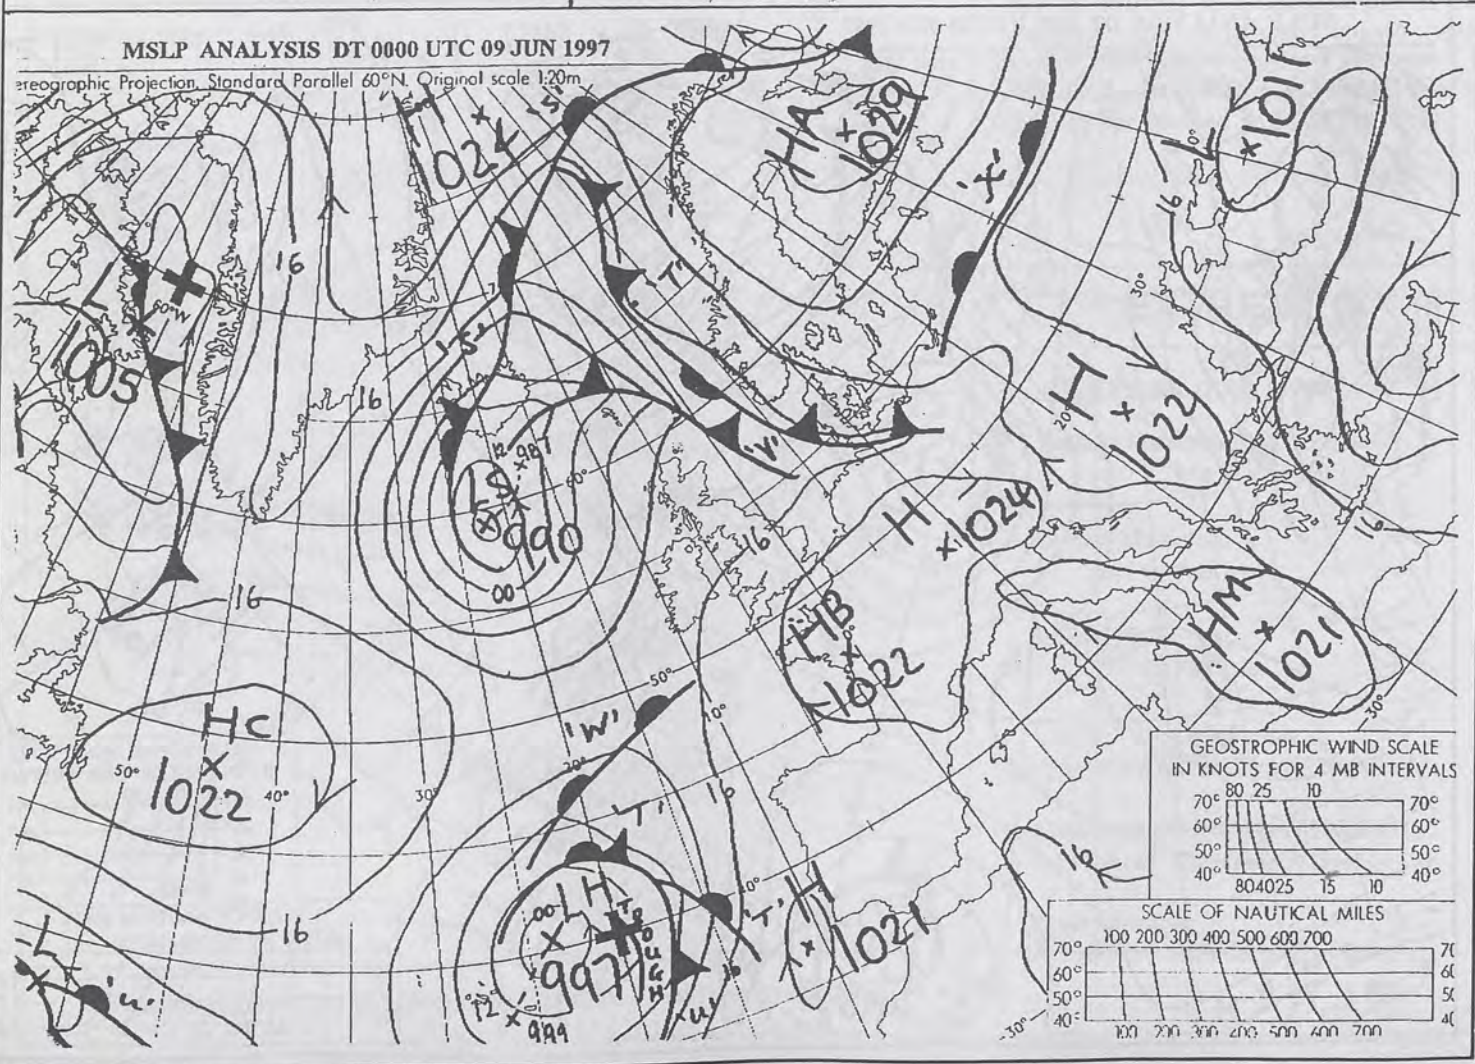 MSLP ANALYSIS DT 0000 UTC 09 JUN 1997
ereographic Projection, Standard Parallel 60°N. Original scale 1:20m
'S'
1024
HA
1029
'X'
L
1011
16
16
'T'
L
1005
60°W
'S'
16
30°
H
1022
20°
12
987
60°
'V'
LS
990
H
1024
16
00
16
16
HB
1022
HM
1021
50°
30°
10°
'W'
HC
1022
50°
40°
30°
20°
'T'
16
40°
LH
00
997
TROUGH
'T'
H
1021
16
16
16
L
'U'
12
999
'U'
30°
GEOSTROPHIC WIND SCALE
IN KNOTS FOR 4 MB INTERVALS
80 25 10
70° 70°
60° 60°
50° 50°
40° 40°
80 40 25 15 10
SCALE OF NAUTICAL MILES
100 200 300 400 500 600 700
70°
60°
50°
40°
100 200 300 400 500 600 700